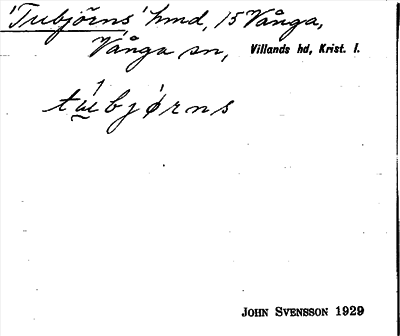 'Tubjörns' hmd, 15 Vånga,
Vånga sn, Villands hd, Krist. l.
tubjørns
JOHN SVENSSON 1929